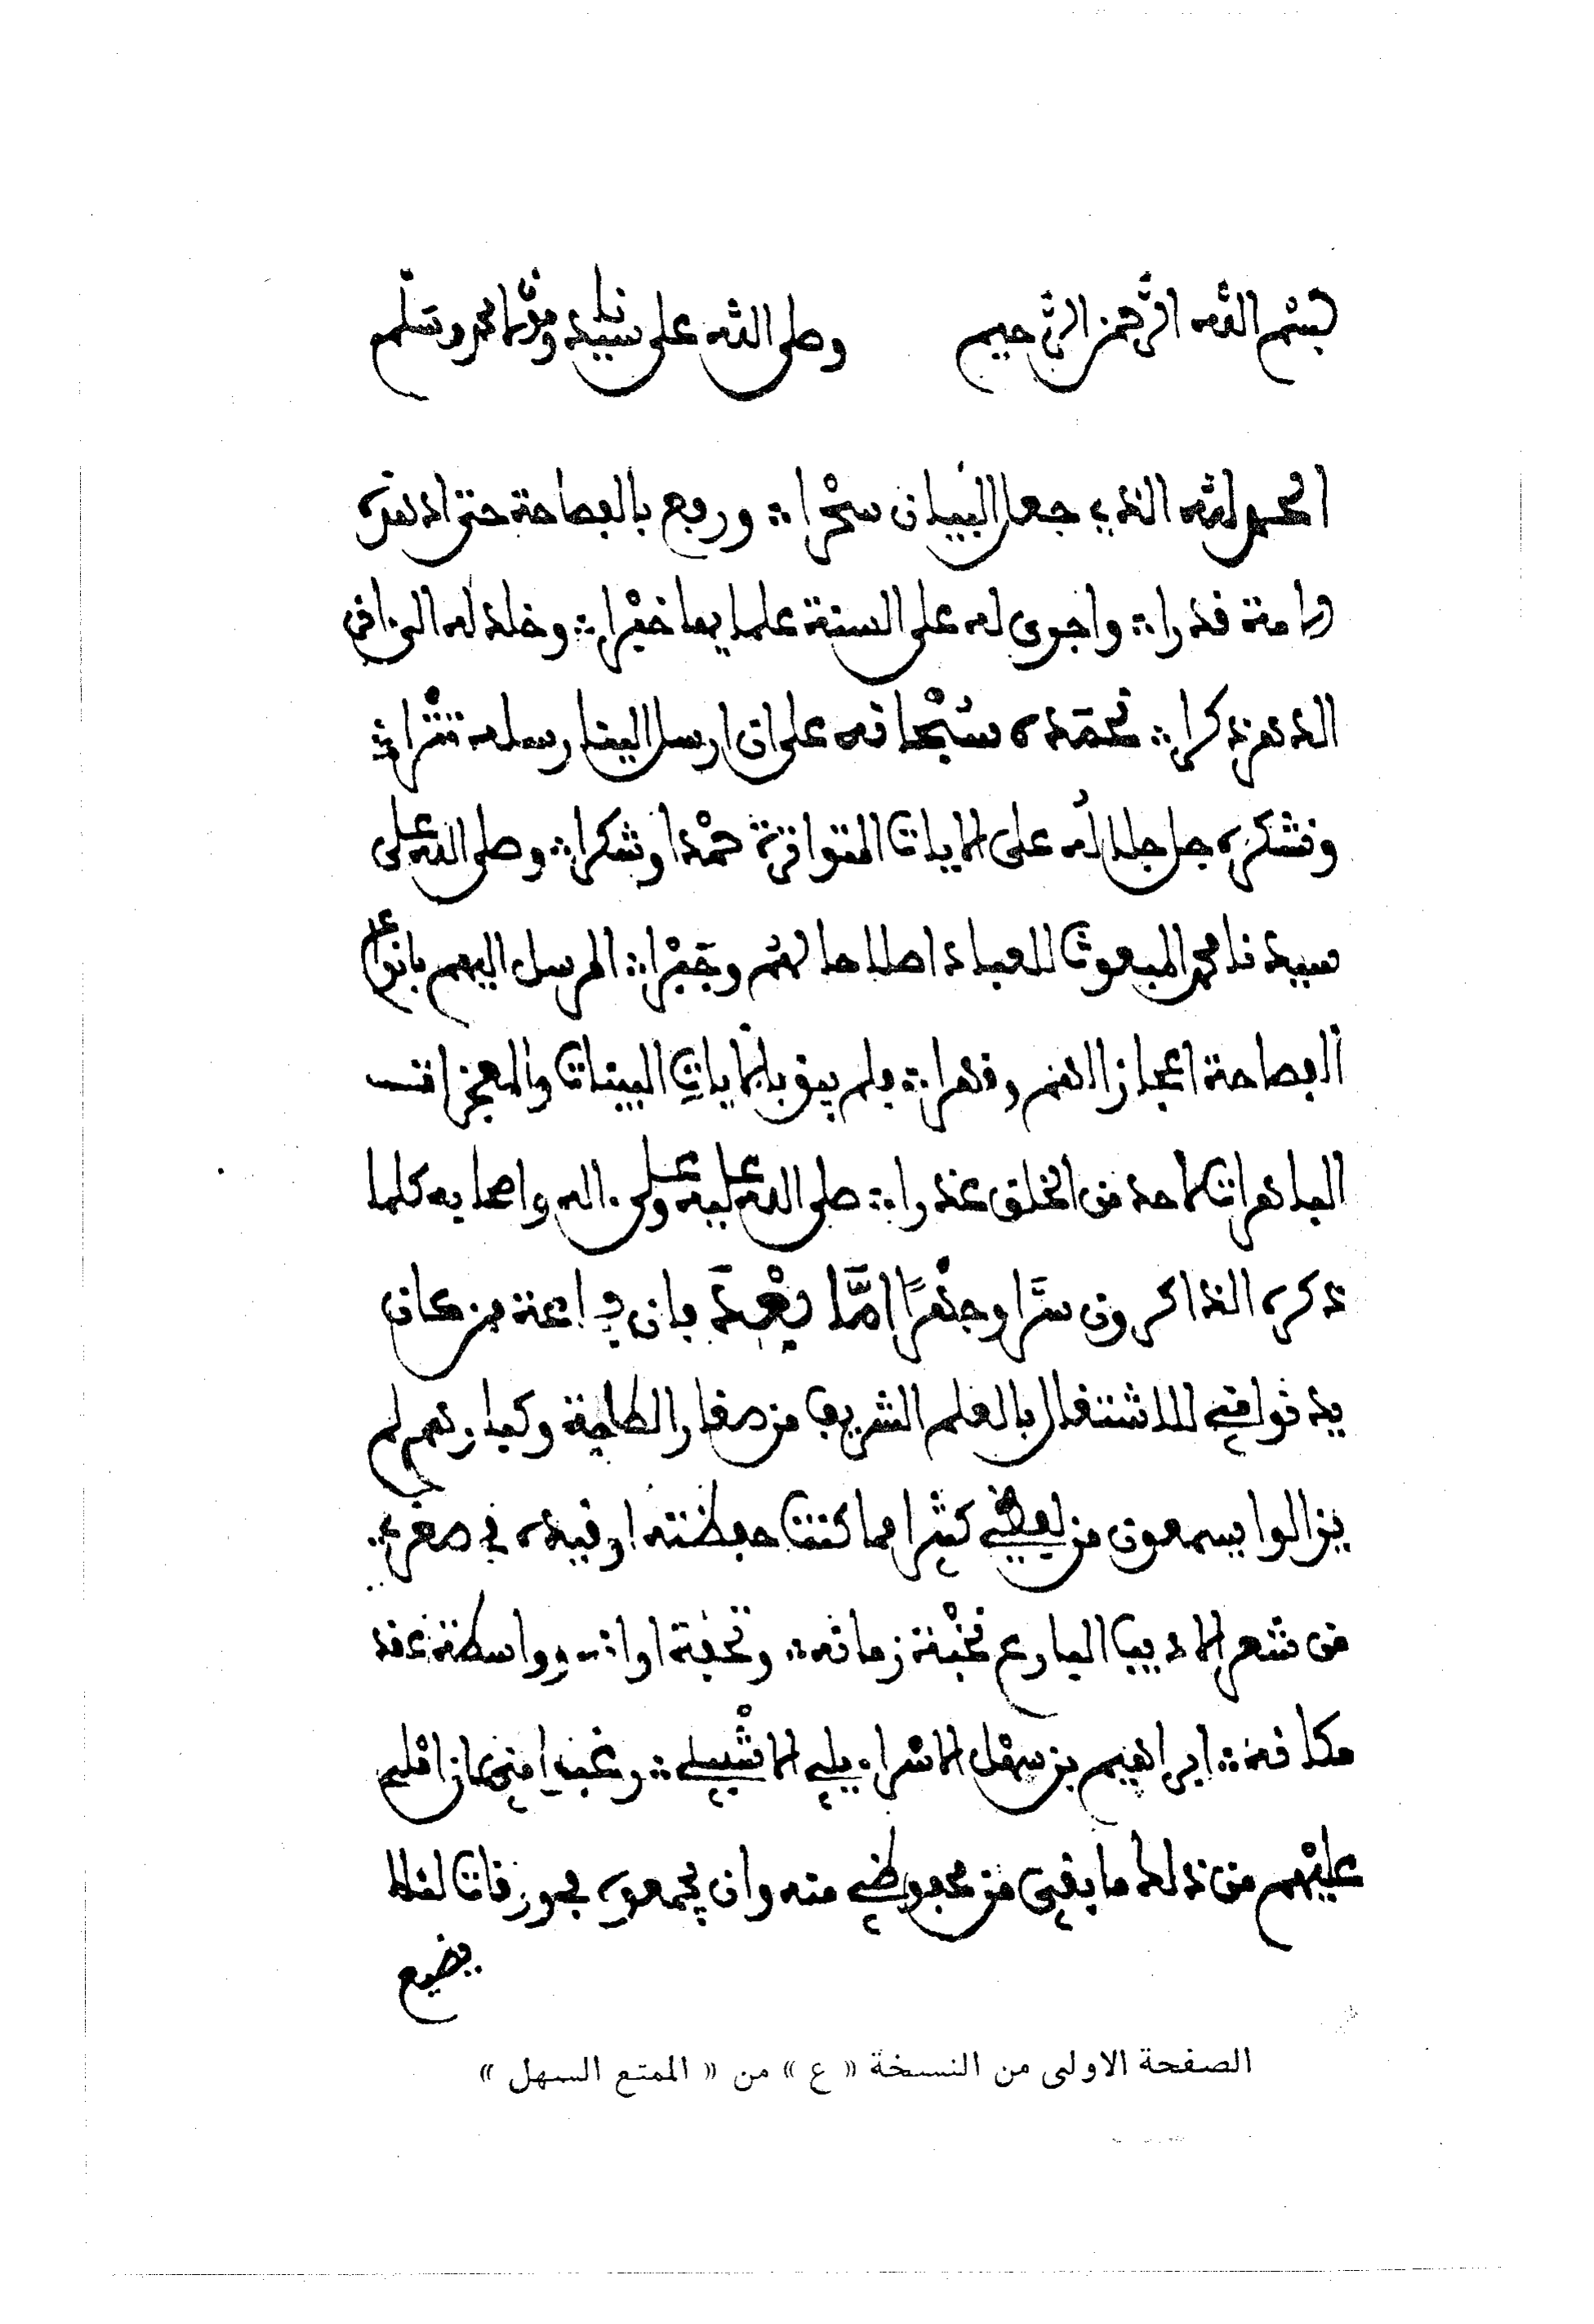 بسم الله الرحمن الرحيم وصلى الله على سيدنا ومولانا محمد وسلم
الحمد لله الذي جعل البيان سحرا ؞ ورفع بالفصاحة حتى اذهرت
قدرا ؞ واجرى له على السنة علمايها خيرا ؞ وخلد له الى ءاخر
الدهر ذكرا ؞ نحمده سبحانه على ان ارسل الينا رسله تترا ؞
ونشكره جل جلاله على الايات المتواترة حمدا وشكرا ؞ وصلى الله على
سيدنا محمد المبعوث للعباد اصلاحا لهم وجبرا ؞ المرسل اليهم بانواع
الفصاحة اعجازا لهم وقهرا ؞ فلم يبق بالايات البينات والمعجزات
الباهرات لاحد من الخلق عذرا ؞ صلى الله عليه وعلى ءاله واصحابه كلما
ذكره الذاكرون سرا وجهرا اما بعد فان جماعة ممن كان
للاشتغال بالعلم الشريف من صغار الطلبة وكبارهم لم
يزالوا يسمعون من لفظي كثيرا مما كنت حفظته او قيدته في صغري ؞
من شعر الاديب البارع نخبة زمانه ؞ وتحفة اوانه ؞ وواسطة عقد
مكانه ؞ ابراهيم بن سهل الاسراءيلي الاشبيلي ؞ ورغبوا مني ان املي
عليهم من ذلك ما بقي من محفوظي منه وان يجمعوه في ورقات لئلا
يضيع
الصفحة الاولى من النسخة « ع » من « الممتع السهل »